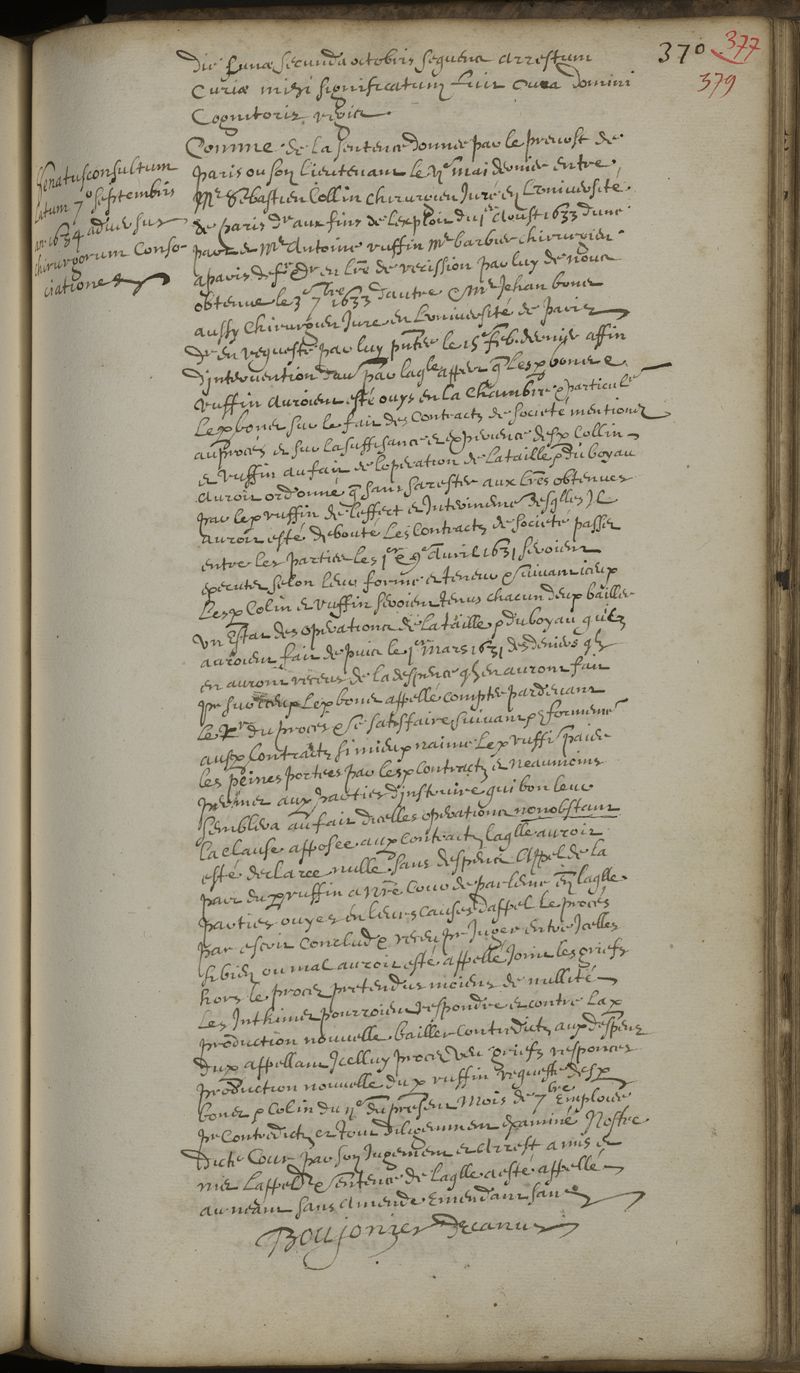 370 377
379
Die Lunæ secunda octobris sequens arrestum
Curiæ mihi significatum fuit cura domini
Cognitoris regii
Senatusconsultum
latum 7° septembris
an 1634 adversus
chirurgorum Conso-
ciationes
Comme de la sentence donnee par le prevost de
Paris ou son lieutenant le mai dernier entre
Mr Sebastien Collin chirurgien Juré en Luniversité
de Paris dr aux fins de lexploit du 1er Aoust 1633 dune
part et Mr Antoine ruffin mr barbier chirurgien
a paris defr & dr en lres de recission par luy de nous
obtenue le 3e 7bre 1633 dautre & Mr Jehan bonet
aussy Chirurgien Jure en Luniversité de Paris
dr en requeste par luy pntee le 15e feb. dernier affin
dintervention dau par laglle appert q Lesp bonet &
ruffin auroient esté ouys en la Chambre & particulr
Lesp bonet sur le fait des Contracts de societé mentionez
au procés et sur la suffisance et experience desp Collin
et ruffin au fait de loperation de la taille & du boyau
auroit ordonné q sans sarester aux lres obtenues
par lep ruffin de leffect et Interinemt desqlles Il
auroit esté debouté Les Contracts de societé passez
entre les parties les 1er & 9e Avril 1631 seroient
executez selon leur forme et teneur & suivant iceux
Lesp Colin et ruffin seroient tenus chacun deux bailler
un Estat des operations de la taille & du boyau quilz
auroient fait depuis le 1er Mars 1631 des deniers qlz
en auront receus & de la despence qlz en auront fait
pr sur iceux Lep bonet appellé compter pardevant
le Rr du proces & se satisfaire suivant & conformemt
ausp Contracts si mieux naime Lep ruffi paier
les peines portees par lesp Contracts et neaumoins
permet aux parties dinstruire qui bon leur
semblera au fait dicelles operations nonobstant
la clause apposee aux contracts laqlle auroit
esté declaree nulle sans despens Appel de la
part dup ruffin a nre Cour de parlemt En laqlle
parties ouyes en leurs causes dappel Le procés
par escrit Conclud & receu pr Juger entre Icelles
si bien ou mal auroit esté appellé Joint les griefs
hors le proces pretendus moiens de nullité
Les Inthimez pourroient respondre et contre La p
production nouvelle bailler Contredicts aux despens
dup appellant Icelluy proces veu griefs responces
production nouvelle dup ruffin requeste desp
bonet & Colin du du present Mois de 7bre Emploiee
pr Contredicts et tout diligemment examiné Nostre
dicte Cour par son Jugement et Arrest a mis et
met Lappel & sentence de laqlle a esté appellé
au neant sans amende Emendant sans
Boujonier decanus